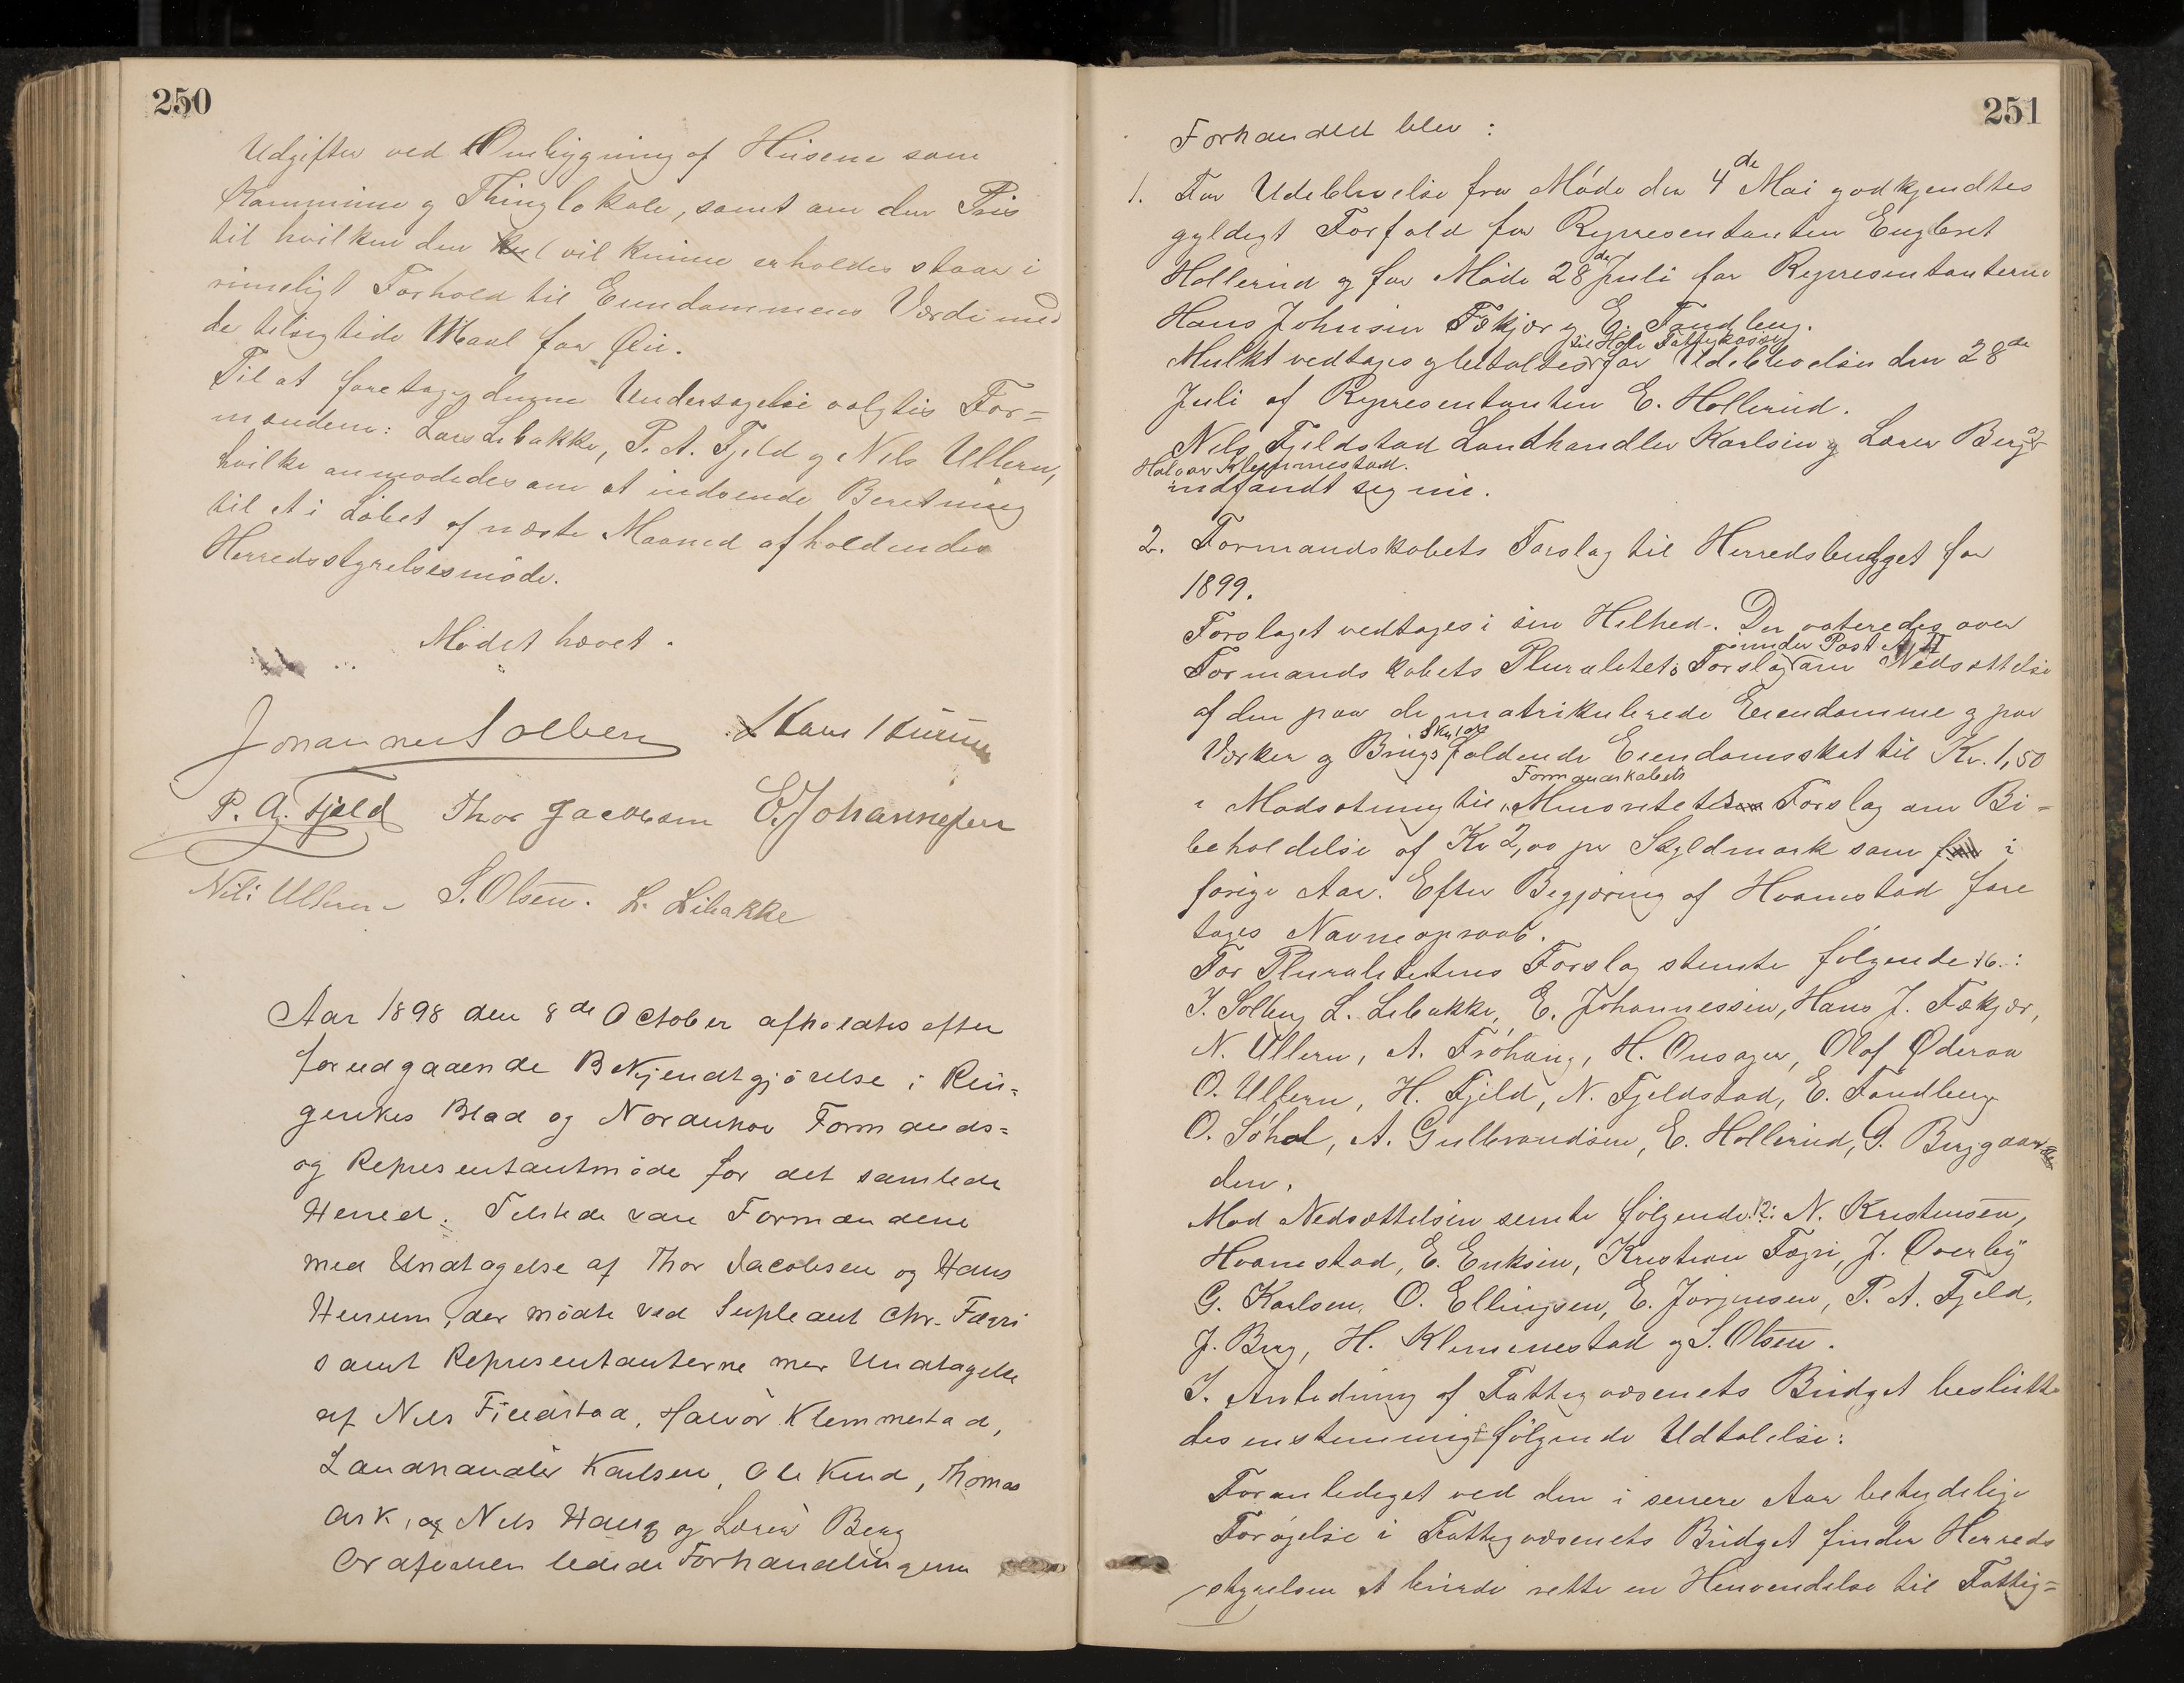 250
Udgifter ved Ombygning af Husene som
Kommune og Thinglokale, samt om den Pris
til hvilken den vil kunne erholdes staar i
rimeligt Forhold til Eiendommens Værdi med
de tilsigtede Maal for Øie.
Til at foretage denne Undersøgelse valgtes For=
mændene: Lars Libakke, P. A. Fjeld og Nils Ullern,
hvilke anmodedes om at indsende Beretning
til et i Løbet af næste Maaned afholdendes
Herredsstyrelsesmøde.
Mødet hævet.
Johannes Solberg Hans Hurum
P. A. Fjeld Thor Jacobsen E. Johannesen
Nils Ullern S. Olsen. L. Libakke
Aar 1898 den 8de October afholdtes efter
forudgaaende Bekjendtgjörelse i Rin=
gerikes Blad og Norderhov Formands=
og Representantmöde for det samlede
Herred. Tilstede vare Formændene
med Undtagelse af Thor Jacobsen og Hans
Hurum, der mödte ved Supleant Chr. Fægri
samt Representanterne med Undtagelse
af Nils Fjeldstad, Halvor Klemmestad,
Landhandler Karlsen, Ole , Thomas
Ask, og Nils Haug og Lærer Berg
Ordföreren ledede Forhandlingerne
251
Forhandlet blev:
1. For Udeblivelse fra Møde den 4de Mai godkjendtes
gyldigt Forfald for Representanten Engbret
Hollerud og for Møde 28de Juli for Representanterne
Hans Johnsen Fækjær og E. Tandberg.
til Hole Fattigkasse
Mulkt vedtages og betaltes for Udeblivelsen den 28de
Juli af Representanten E. Hollerud.
Nils Fjeldstad Landhandler Karlsen og Lærer Berg og
Halvor Klemmestad.
indfandt seg nu.
2. Formandskabets Forslag til Herredsbudget for
1899.
Forslaget vedtages i sin Helhed. Der voteredes over
under Post A II
Formandskabets Pluralitets Forslag om Nedsættelse
af den paa de matrikulerede Eiendomme og paa
Skyld
Værker og Brugs faldende Eiendomsskat til Kr. 1,50
Formandskabets
i Modsætning til Minoritets Forslag om Bi=
beholdelse af Kr 2,00 pr Skyldmark som i
forrige Aar. Efter Begjæring af Hvamstad fore
tages Navneopraab.
For Pluralitetens Forslag stemte følgende 16.:
J. Solberg L. Libakke, E. Johannessen, Hans J. Fækjær,
N. Ullern, A. Frøhaug, H. Onsager, Olaf Øderaa
O. Ullern, H. Fjeld, N. Fjeldstad, E. Tandberg
O. Søhol, A. Gulbrandsen, E. Hollerud, G. Berggaar
den.
Mod Nedsættelsen stemte følgende 12: N. Kristensen,
Hvamstad, E. Eriksen, Kristian Fægri, J. Overby
G. Karlsen, O. Ellingsen, E. Jørgensen, P. A. Fjeld,
J. Berg, H. Klemmestad og S. Olsen.
I Anledning af Fattigvæsenets Budget beslutte
des enstemmigt følgende Udtalelse:
Foranlediget ved den i senere Aar betydelige
Forøgelse i Fattigvæsenets Budget finder Herreds
styrelsen at burde rette en Henvendelse til Fattig=